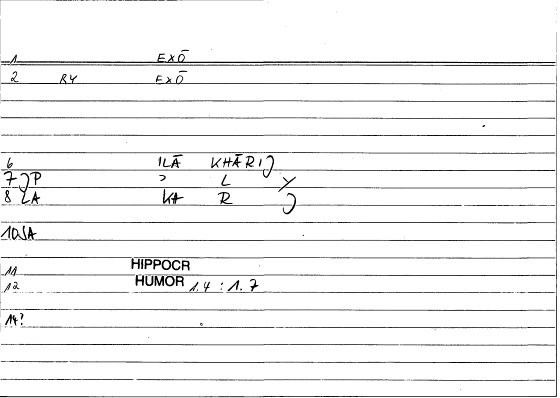 1 EXŌ
2 RY EXŌ
6 ILĀ KHĀRI
7 P L Y
8 LA KA R
10 SA
11 HIPPOCR
12 HUMOR 1.4 : 1.7
14?